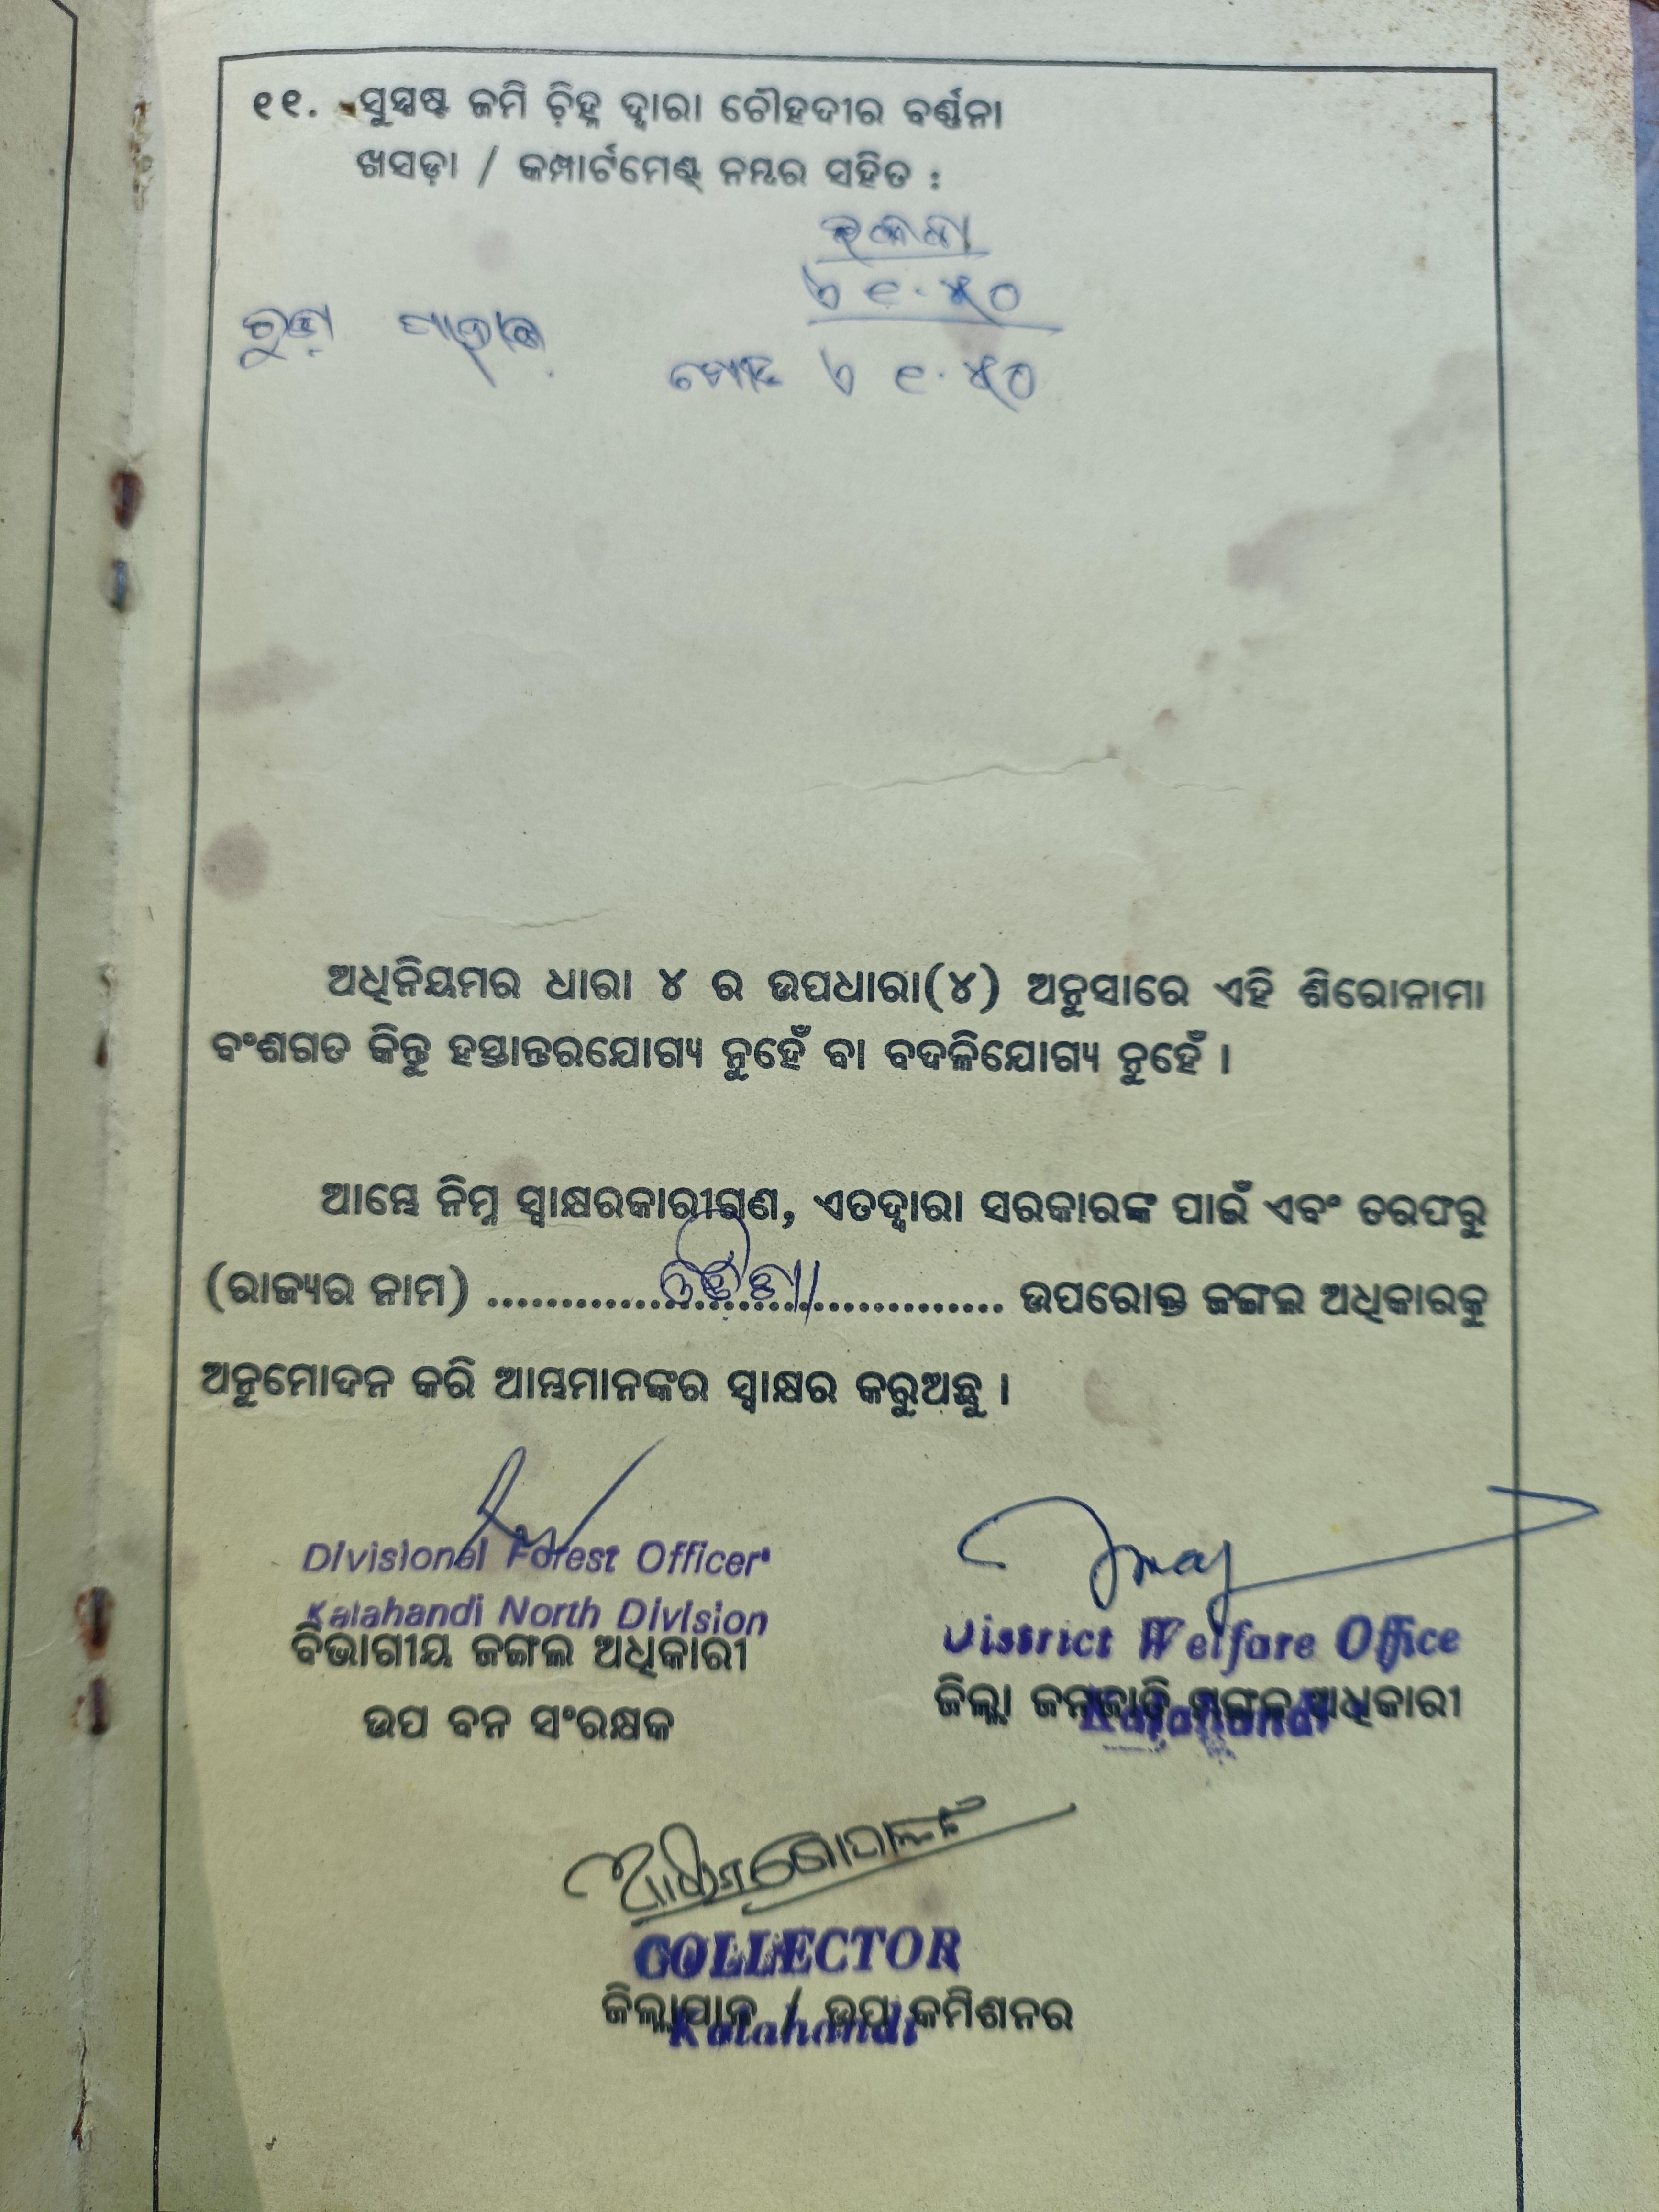 ୧୧. ସୁସ୍ପଷ୍ଟ ଜମି ଚିହ୍ନ ଦ୍ୱାରା ଚୌହଦୀର ବର୍ଣ୍ଣନା
ଖସଡ଼ା / କମ୍ପାର୍ଟମେଣ୍ଟ୍ ନମ୍ବର ସହିତ :
ରକବା
୬୧.୫୦
ମୋଟ ୬୧.୫୦
ଅଧିନିୟମର ଧାରା ୪ ର ଉପଧାରା(୪) ଅନୁସାରେ ଏହି ଶିରୋନାମା
ବଂଶଗତ କିନ୍ତୁ ହସ୍ତାନ୍ତରଯୋଗ୍ୟ ନୁହେଁ ବା ବଦଳିଯୋଗ୍ୟ ନୁହେଁ ।
ଆମ୍ଭେ ନିମ୍ନ ସ୍ୱାକ୍ଷରକାରୀଗଣ, ଏତଦ୍ୱାରା ସରକାରଙ୍କ ପାଇଁ ଏବଂ ତରଫରୁ
(ରାଜ୍ୟର ନାମ) ........ଓଡ଼ିଶା........ ଉପରୋକ୍ତ ଜଙ୍ଗଲ ଅଧିକାରକୁ
ଅନୁମୋଦନ କରି ଆମ୍ଭମାନଙ୍କର ସ୍ୱାକ୍ଷର କରୁଅଛୁ ।
Divisional Forest Officer
Kalahandi North Division
ବିଭାଗୀୟ ଜଙ୍ଗଲ ଅଧିକାରୀ
ଉପ ବନ ସଂରକ୍ଷକ
District Welfare Office
ଜିଲ୍ଲା ଜନଜାତି ମଙ୍ଗଳ ଅଧିକାରୀ
Kalahandi
COLLECTOR
ଜିଲ୍ଲାପାଳ / ଉପ କମିଶନର
Kalahandi